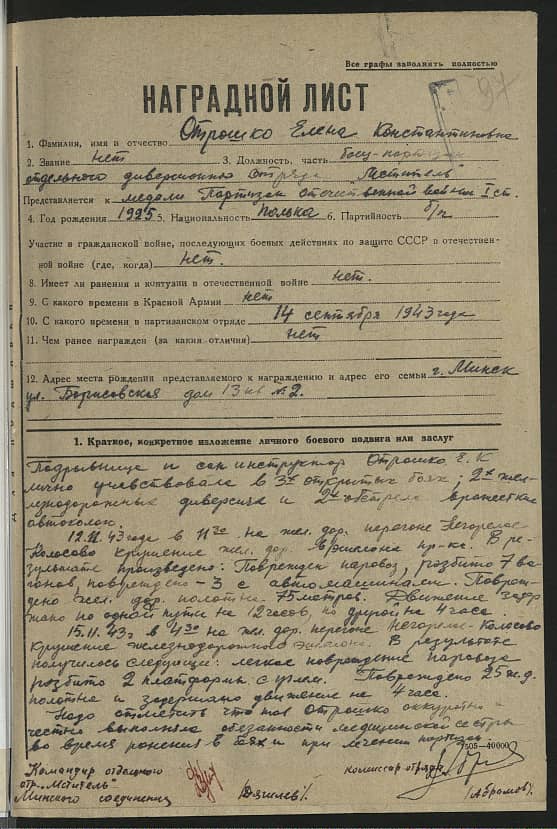 Все графы заполнять полностью
97
НАГРАДНОЙ ЛИСТ
1. Фамилия, имя и отчество Отрошко Елена Константиновна
2. Звание нет 3. Должность, часть боец-партизан
отдельного диверсионного отряда "Мститель"
Представляется к медали Партизан отечественной войны I ст.
4. Год рождения 1925 5. Национальность полька 6. Партийность б/п
Участие в гражданской войне, последующих боевых действиях по защите СССР и отечествен-
ной войне (где, когда) нет.
8. Имеет ли ранения и контузии в отечественной войне нет.
9. С какого времени в Красной Армии нет
10. С какого времени в партизанском отряде 14 сентября 1943 года
11. Чем ранее награжден (за какия отличия) нет
12. Адрес места рождения представляемого к награждению и адрес его семьи г. Минск
ул. Борисовская дом 13 кв №2.
1. Краткое, конкретное изложение личного боевого подвига или заслуг
Подрывница и санинструктор Отрошко Е. К
лично учавствовала в 3х открытых боях; 2х жел-
езнодорожных диверсиях и 2х обстрела вражеских
автоколон.
12.11.43 года в 11 30 на жел. дор. перегоне Негорелое-
Колосово крушение жел. дор. эшелона пр-ка. В ре-
зультате произведено: Поврежден паровоз, розбито 7 ва
гонов, повреждено - 3 с автомашинами. Повреж-
дено жел. дор. полотна - 75 метров. Движение задер
жано по одной пути на 12 часов, по другой на 4 часа.
15.11.43 г в 4 30 на жел. дор. перегоне Негорелое-Колосово
крушение железнодорожного эшелона. В результате
получилось следующие: легкое повреждение паровоза
розбито 2 платформы с углем. Повреждено 25 м ж.д.
полотна и задержано движение на 4 часа.
Надо отметить что тов Отрошко аккуратно и
честно выполняла обезанности медицинской сестры
во время ранения в боях и при лечении партизан.
7505—40000
Командир отдельного
отр. "Мститель"
Минского соединения
комиссар отряда
(Абрамов).